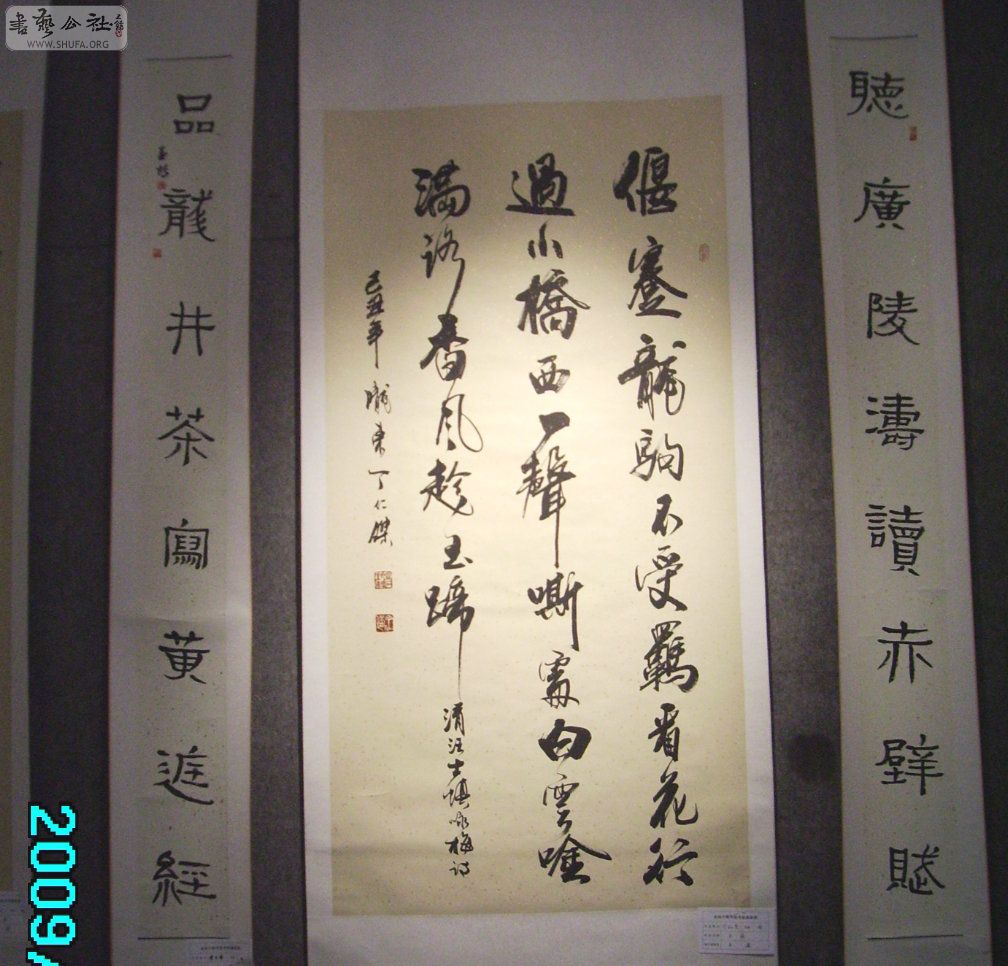 書藝公社
WWW.SHUFA.ORG
聽廣陵濤讀赤壁賦
偃蹇龍駒不受羈看花行
過小橋西一聲嘶處白雲唫
滿路香風趁玉蹄
清汪士慎咏梅詩
己丑年隴東丁仁傑
品龍井茶寫黃庭經
2009/